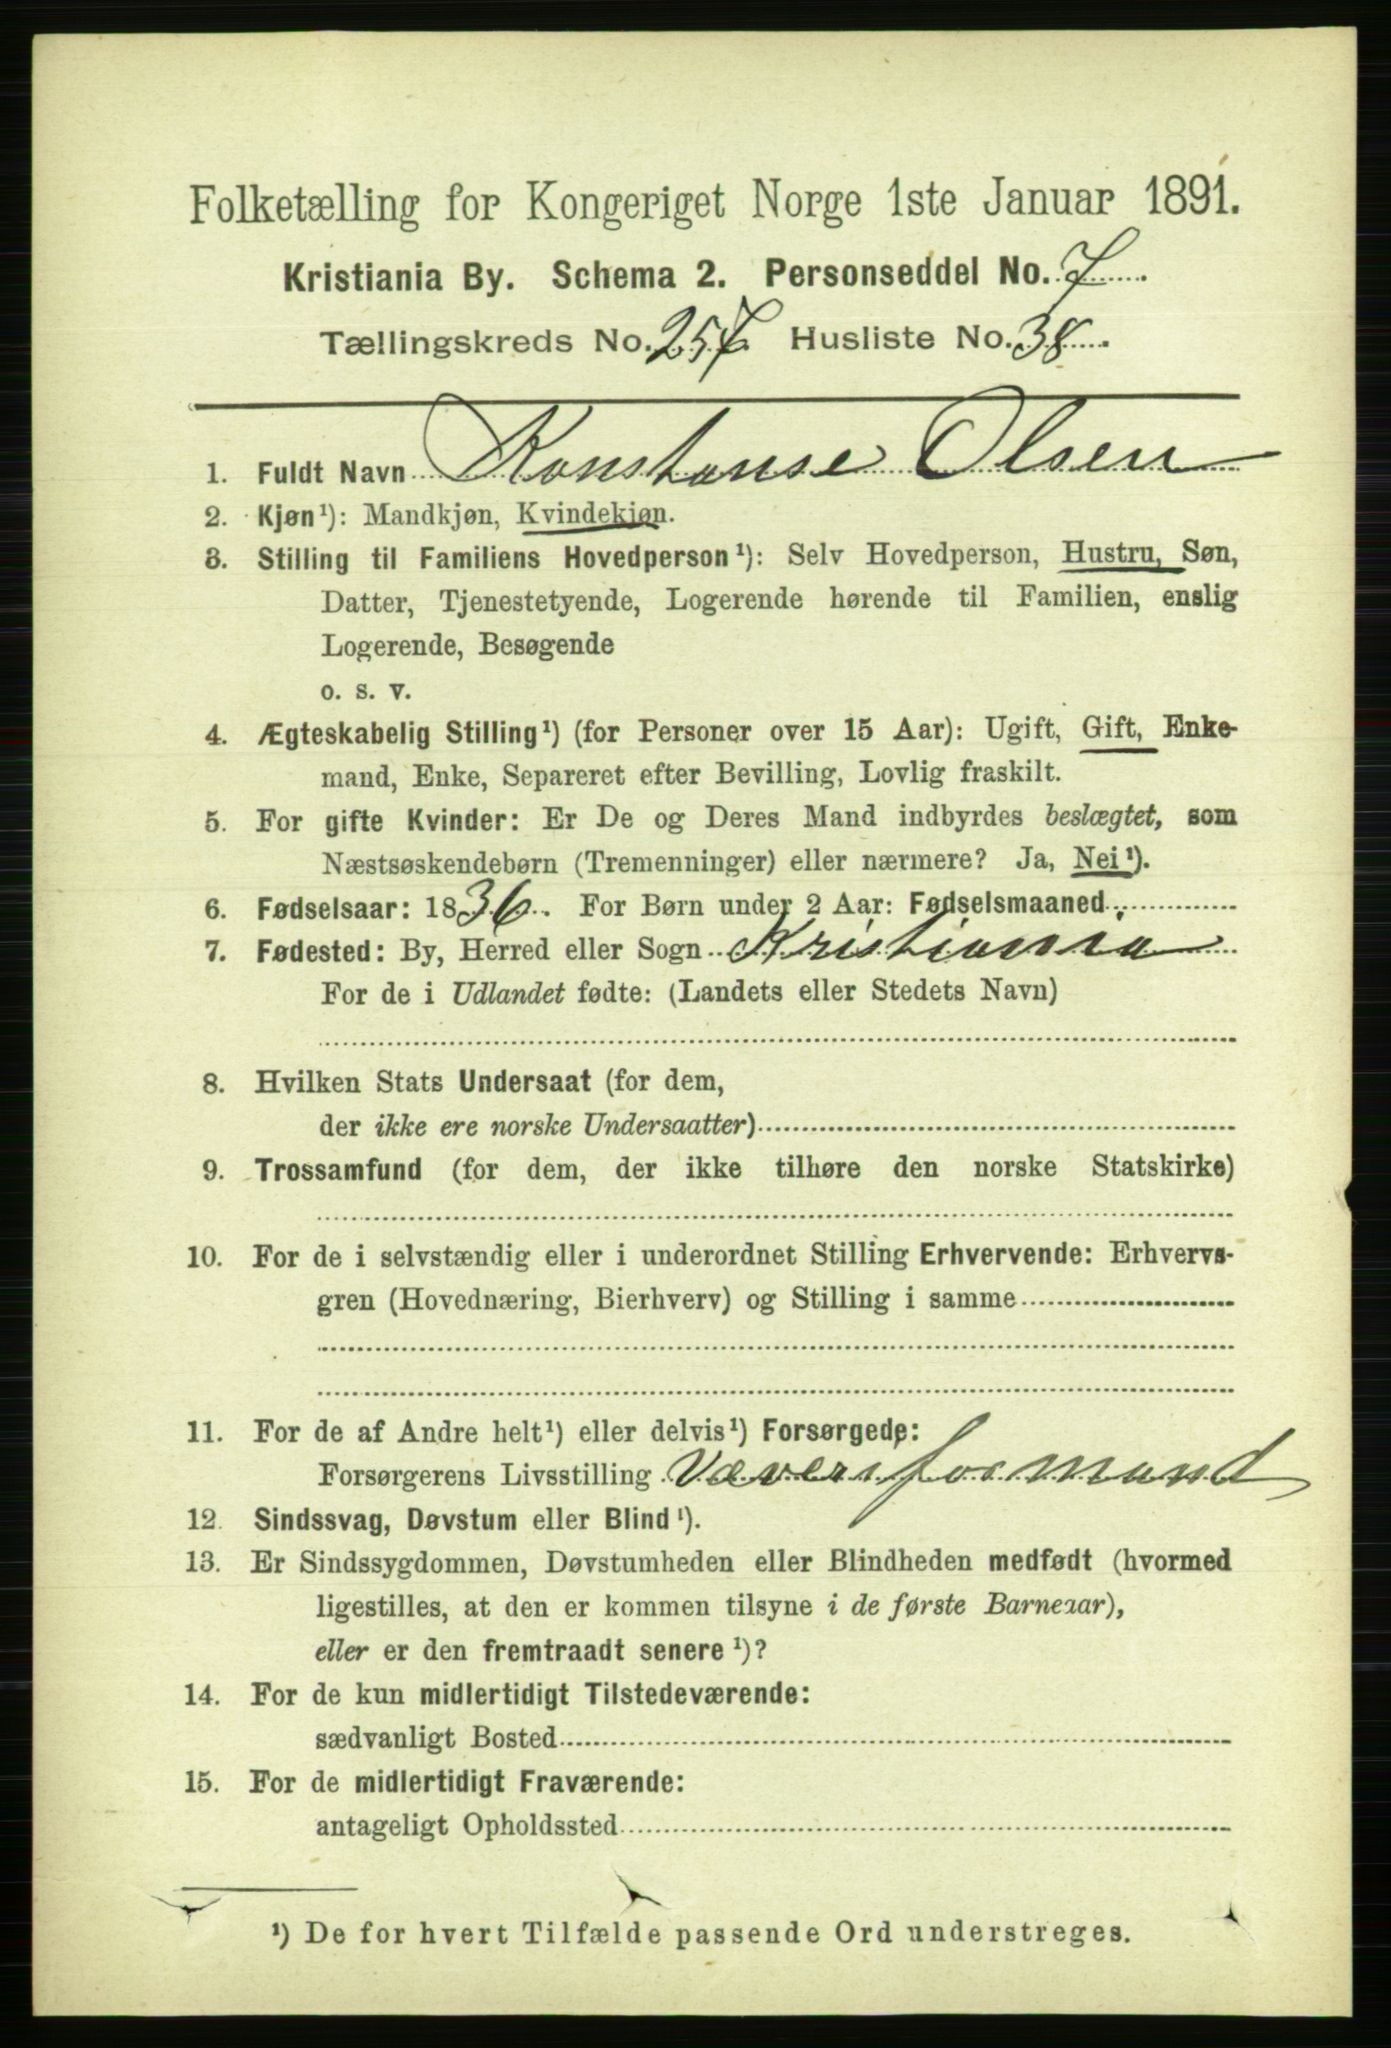 Folketælling for Kongeriget Norge 1ste Januar 1891.
Kristiania By. Schema 2. Personseddel No. 7
Tællingskreds No. 257 Husliste No. 38
1. Fuldt Navn Konstanse Olsen
2. Kjøn¹): Mandkjøn, Kvindekjøn.
3. Stilling til Familiens Hovedperson¹): Selv Hovedperson, Hustru, Søn,
Datter, Tjenestetyende, Logerende hørende til Familien, enslig
Logerende, Besøgende
o. s. v.
4. Ægteskabelig Stilling¹) (for Personer over 15 Aar): Ugift, Gift, Enke-
mand, Enke, Separeret efter Bevilling, Lovlig fraskilt.
5. For gifte Kvinder: Er De og Deres Mand indbyrdes beslægtet, som
Næstsøskendebørn (Tremenninger) eller nærmere? Ja, Nei¹).
6. Fødselsaar: 1836. For Børn under 2 Aar: Fødselsmaaned
7. Fødested: By, Herred eller Sogn Kristiania
For de i Udlandet fødte: (Landets eller Stedets Navn)
8. Hvilken Stats Undersaat (for dem,
der ikke ere norske Undersaatter)
9. Trossamfund (for dem, der ikke tilhøre den norske Statskirke)
10. For de i selvstændig eller i underordnet Stilling Erhvervende: Erhvervs-
gren (Hovednæring, Bierhverv) og Stilling i samme
11. For de af Andre helt¹) eller delvis¹) Forsørgede:
Forsørgerens Livsstilling Væveriformand
12. Sindssvag, Døvstum eller Blind¹).
13. Er Sindssygdommen, Døvstumheden eller Blindheden medfødt (hvormed
ligestilles, at den er kommen tilsyne i de første Barneaar),
eller er den fremtraadt senere¹)?
14. For de kun midlertidigt Tilstedeværende:
sædvanligt Bosted
15. For de midlertidigt Fraværende:
antageligt Opholdssted
¹) De for hvert Tilfælde passende Ord understreges.